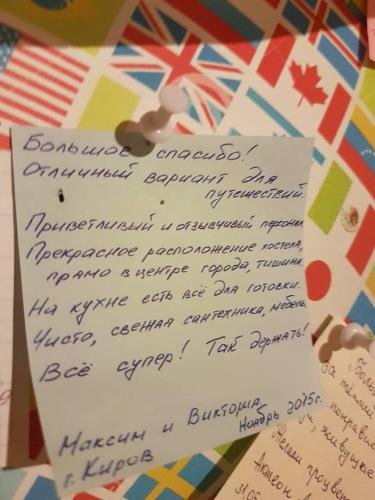 Большое спасибо!
Отличный вариант для
путшествий.
Приветливый и отзывчивый персонал
Прекрасное расположение хостела,
прямо в центре города, тишина.
На кухне есть всё для готовки.
Чисто, свежая сантехника, мебель.
Всё супер! Так держать!
Максим и Виктория
Ноябрь 2015г.
г. Киров